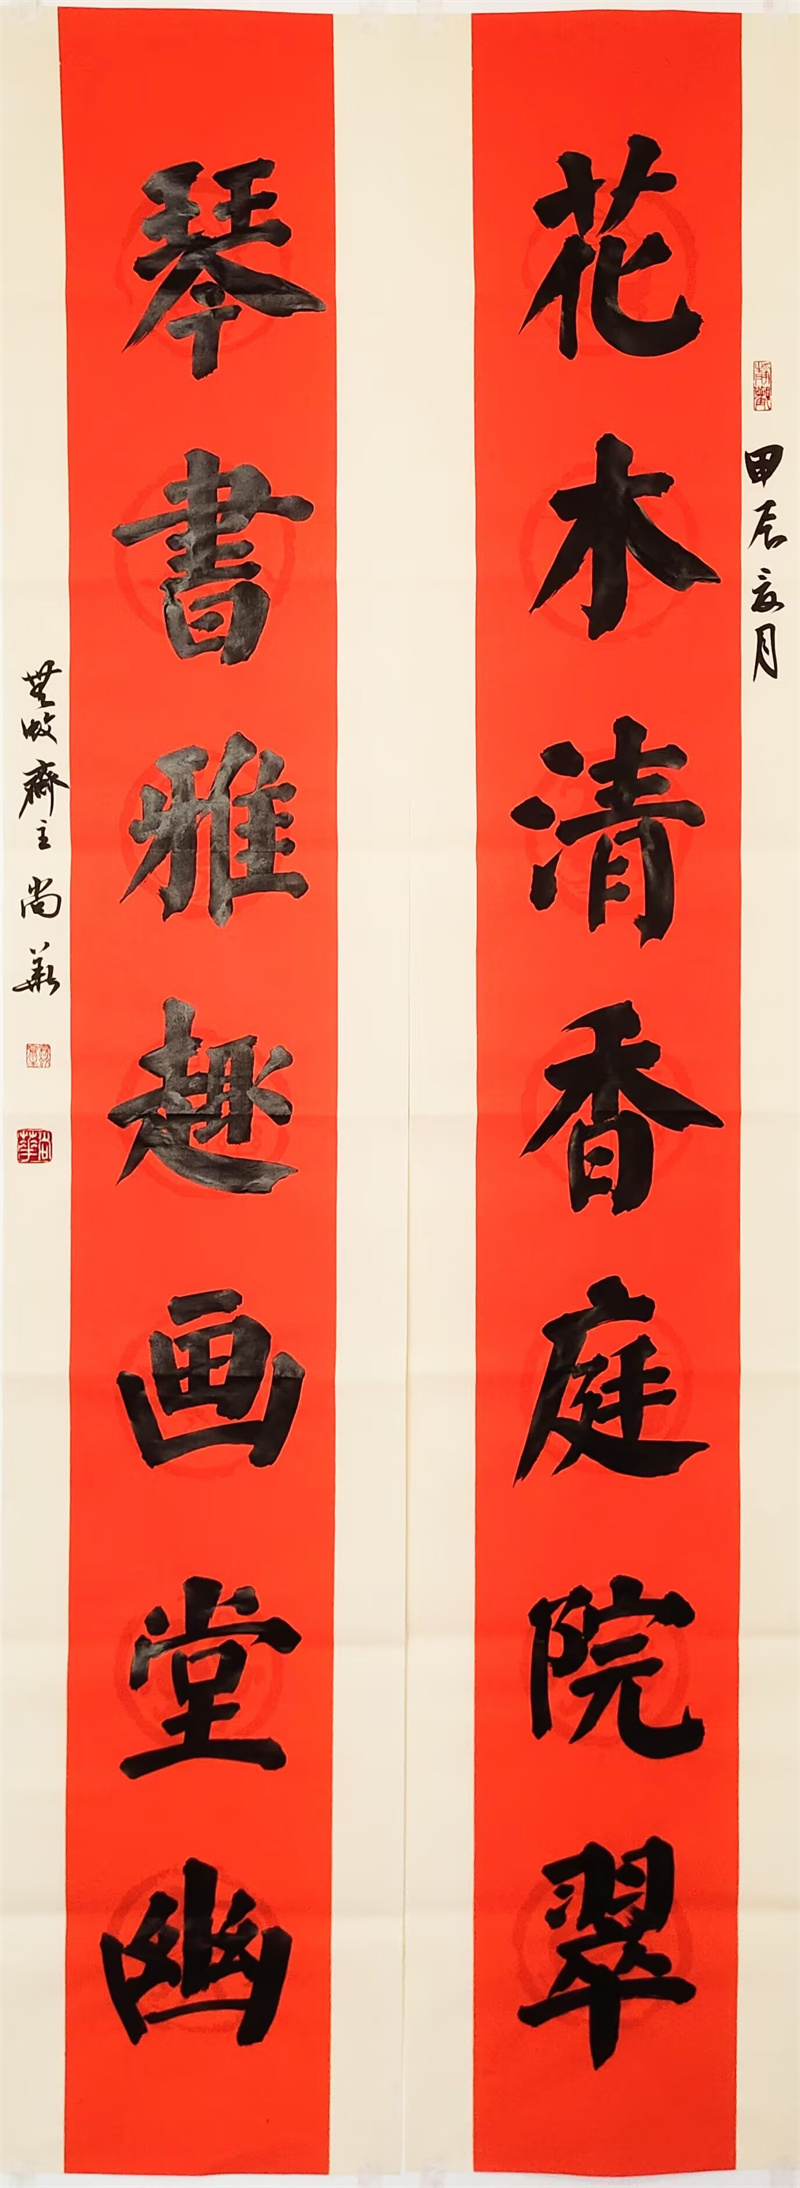 花木清香庭院翠
甲辰亥月
琴書雅趣画堂幽
無蚊齋主尚華
尚華